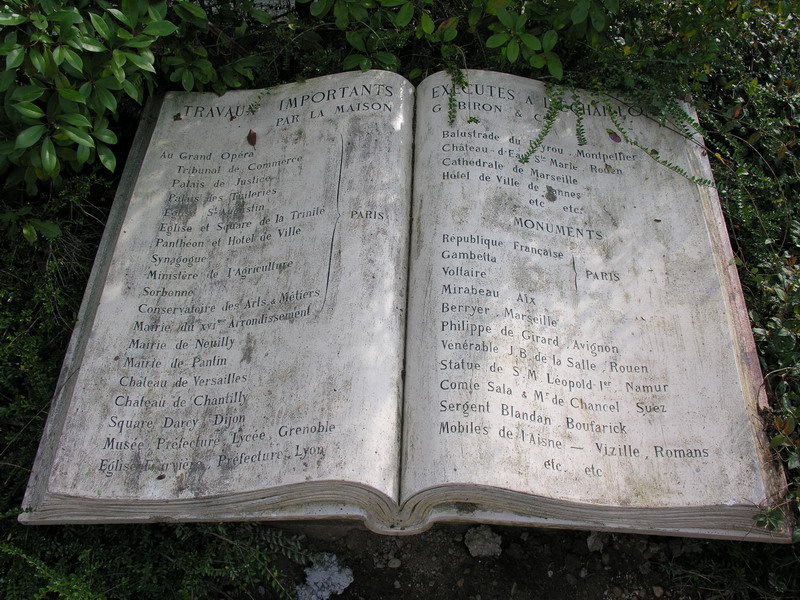 TRAVAUX IMPORTANTS
PAR LA MAISON
Au Grand Opéra
Tribunal de Commerce
Palais de Justice
Palais des Tuileries
Eglise St
Eglise et Square de la Trinité
Panthéon et Hotel de Ville
Synagogue
Ministère de l'Agriculture
Sorbonne
Conservatoire des Arts & Métiers
PARIS
Mairie du XVIme Arrondissement
Mairie de Neuilly
Mairie de Pantin
Château de Versailles
Chateau de Chantilly
Square Darcy Dijon
Musée Préfecture Lycée Grenoble
Eglise Fourvière Préfecture Lyon
EXÉCUTÉS A
G. BIRON & C
Balustrade du Peyrou Montpellier
Château-d'Eau Ste Marie Rouen
Cathédrale de Marseille
Hôtel de Ville de
etc. etc.
MONUMENTS
République Française
Gambetta
Voltaire
PARIS
Mirabeau Aix
Berryer Marseille
Philippe de Girard Avignon
Venérable J.B. de la Salle, Rouen
Statue de S.M. Léopold 1er, Namur
Comie Sala & Mr de Chancel Suez
Sergent Blandan Boufarick
Mobiles de l'Aisne — Vizille, Romans
etc. etc.